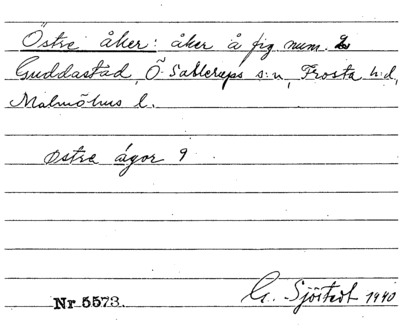 Östre åker: åker å fig num. 2
Guddastad, Ö. Sallerups s:n, Frosta h:d,
Malmöhus l.
østre ágor 9
Nr 5573.
G. Sjöstedt 1940